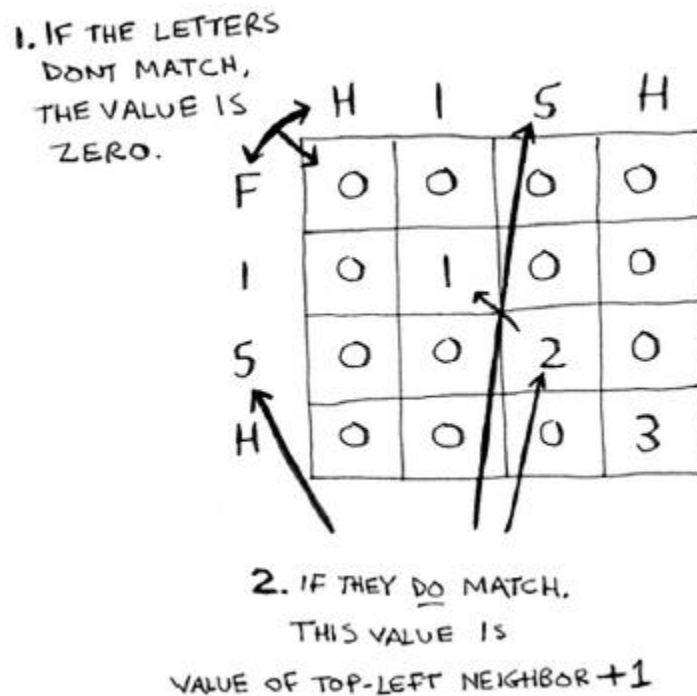 1. IF THE LETTERS
DONT MATCH,
THE VALUE IS
ZERO.
H I S H
F 0 0 0 0
I 0 1 0 0
S 0 0 2 0
H 0 0 0 3
2. IF THEY DO MATCH.
THIS VALUE IS
VALUE OF TOP-LEFT NEIGHBOR +1